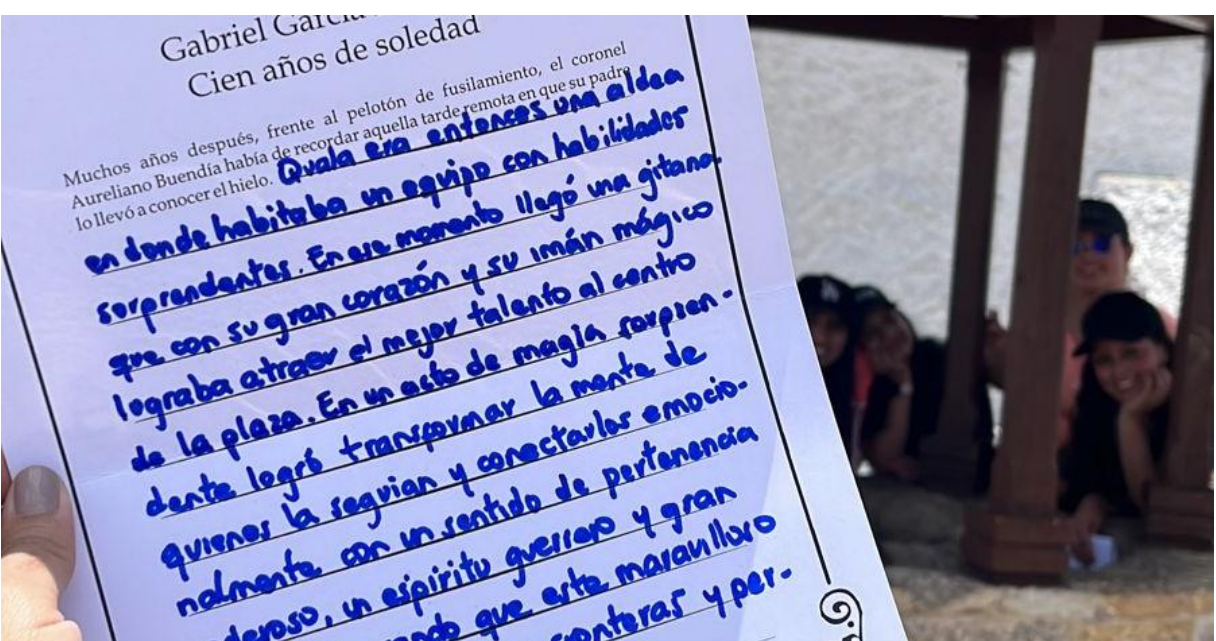 Gabriel García
Cien años de soledad
Muchos años después, frente al pelotón de fusilamiento, el coronel
Aureliano Buendía había de recordar aquella tarde remota en que su padre
lo llevó a conocer el hielo. Quala era entonces una aldea
en donde habitaba un equipo con habilidades
sorprendentes. En ese momento llegó una gitana
que con su gran corazón y su imán mágico
lograba atraer el mejor talento al centro
de la plaza. En un acto de magia sorpren-
dente logró transformar la mente de
quienes la seguian y conectarlos emocio-
nalmente con un sentido de pertenencia
deroso, un espíritu guerrero y gran
ando que este maravilloso
onteras y per-